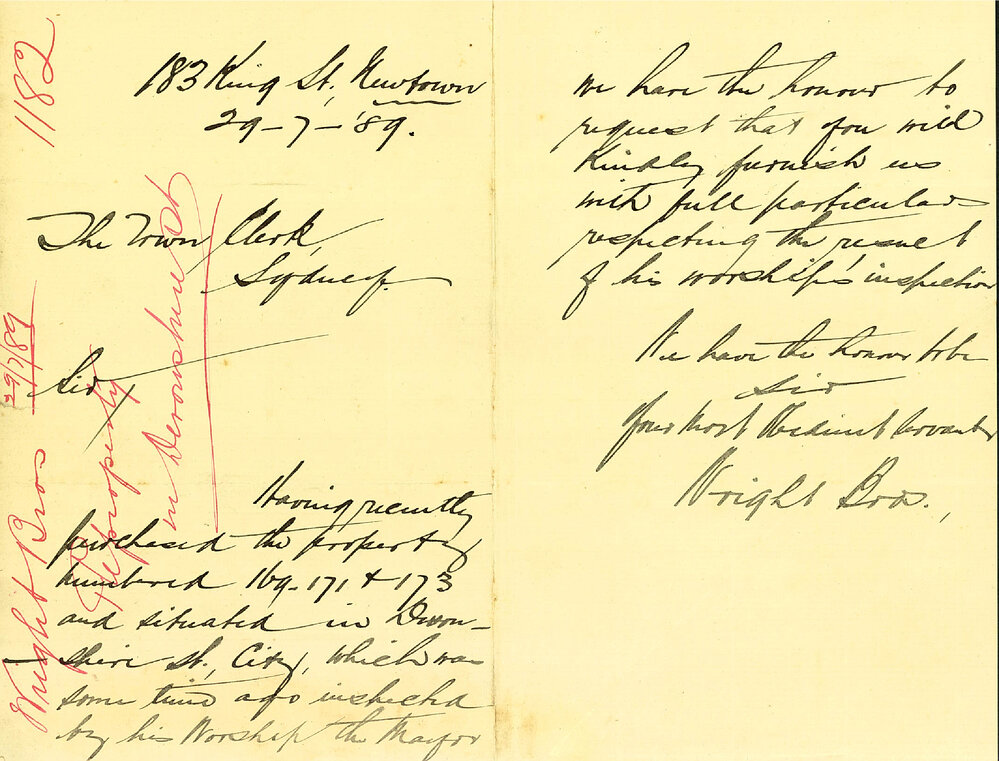 183 King St, Newtown
29-7-'89.
The Town Clerk,
Sydney.
Sir
Having recently
purchased the property
numbered 169-171 & 173
and situated in Devon-
shire St, City, which was
some time ago inspected
by his Worship the Mayor
we have the honour to
request that you will
kindly furnish us
with full particulars
respecting the result
of his worship's inspection
We have the honour to be
Sir
Your Most Obedient Servants
Wright Bros.,
1182
29/7/89
Wright Bros
Re property
in Devonshire St